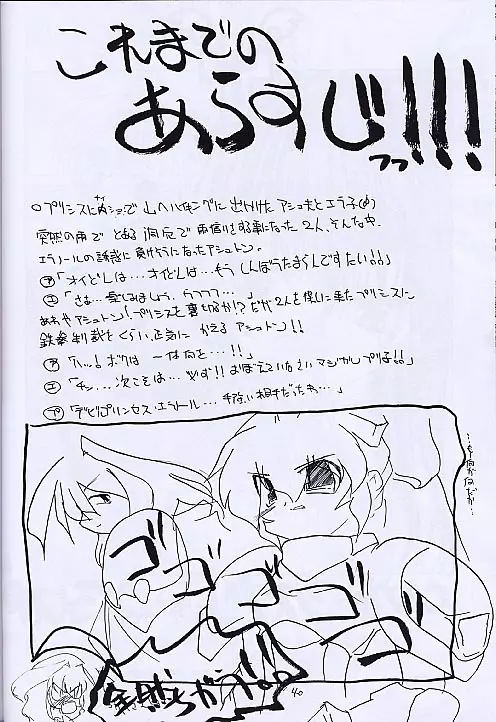 これまでの
あらすじっっ!!!
○プリンスにナイショで 山へハイキングに出かけたアシュ夫とエラ子(め)
突然の雨で とある洞窟で雨宿りをする事になった2人、そんな中、
エラノールの誘惑に負けそうになったアシュトン。
ア「オイどんは…オイどんは…もう しんぼうたまらんですたい!!」
エ「さぁ…楽しみましょう、ウフフフ…」
ああやアシュトン!プリンスを裏切るか!?だが2人を捜しに来たプリンスに
鉄拳制裁をくらい、正気に かえる アシュトン!!
ア「ハ…!ボクは 一体何を…!!」
エ「チッ…次こそは…必ず!!おぼえていなさい マジカルプリ子!!」
プ「デビプリンセス・エラノール…手強い相手だったわ…」
ゴゴゴゴゴ
全然ちがう!!
40